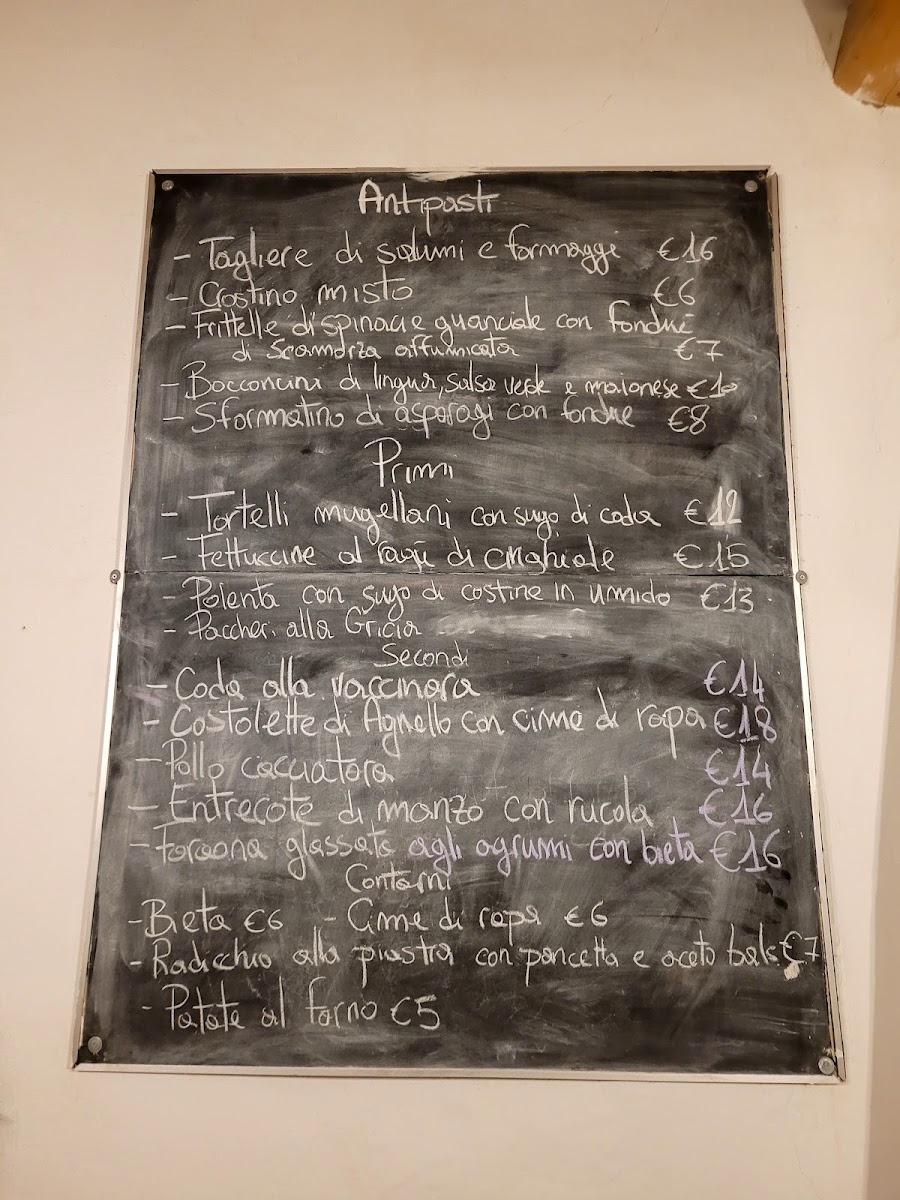 Antipasti
- Tagliere di salumi e formaggi €16
- Crostino misto €6
- Frittelle di spinaci e guanciale con fondue
di Scamorza affumicata €7
- Bocconcini di lingua, salsa verde e maionese €10
- Sformatino di asparagi con fondue €8
Primi
- Tortelli mugellani con sugo di coda €12
- Fettuccine al ragù di cinghiale €15
- Polenta con sugo di costine in umido €13
- Paccheri alla Gricia
Secondi
- Coda alla vaccinara €14
- Costolette di Agnello con cime di rapa €18
- Pollo cacciatora €14
- Entrecote di manzo con rucola €16
- Faraona glassata agli agrumi con bieta €16
Contorni
- Bieta €6 - Cime di rapa €6
- Radicchio alla piastra con pancetta e aceto bals €7
- Patate al forno €5